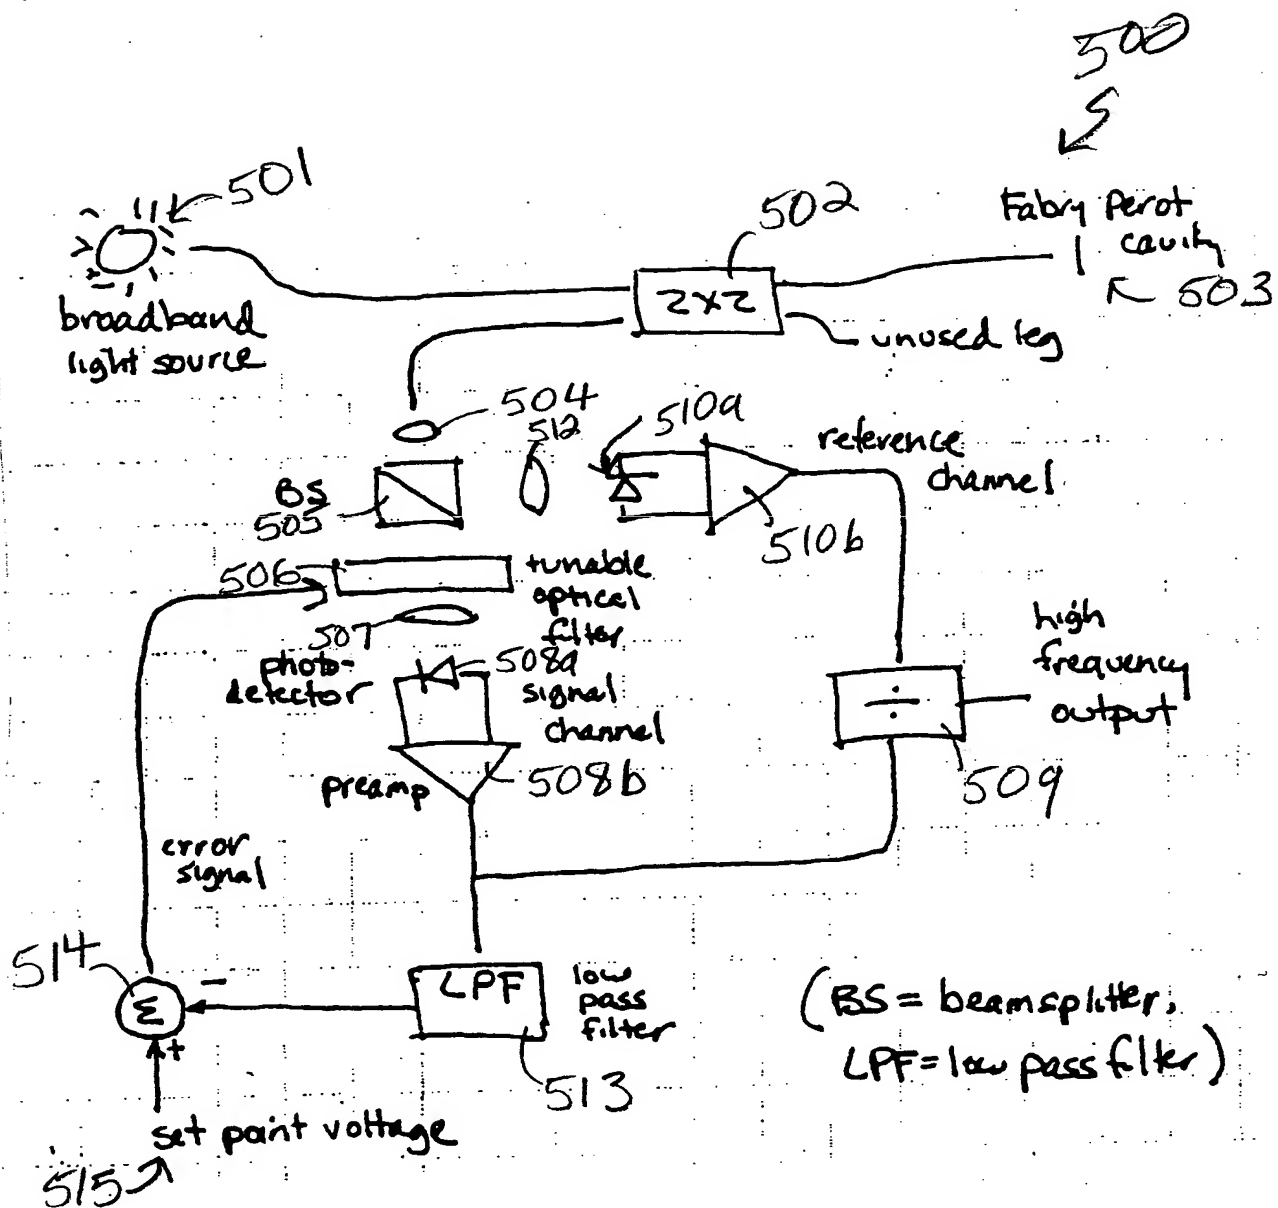 500
501
502
Fabry Perot
cavity
503
broadband
light source
2x2
unused leg
504
512
510a
reference
channel
BS
505
510b
506
tunable
optical
filter
507
photo-
detector
508a
signal
channel
high
frequency
output
÷
preamp
508b
509
error
signal
514
Σ
-
+
LPF
low
pass
filter
513
(BS = beamsplitter,
LPF = low pass filter)
set point voltage
515